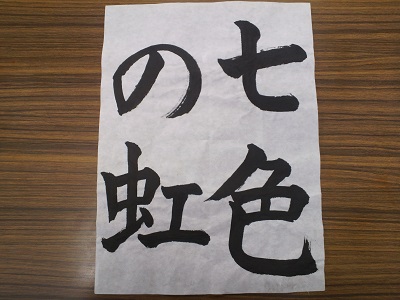 七色
の虹